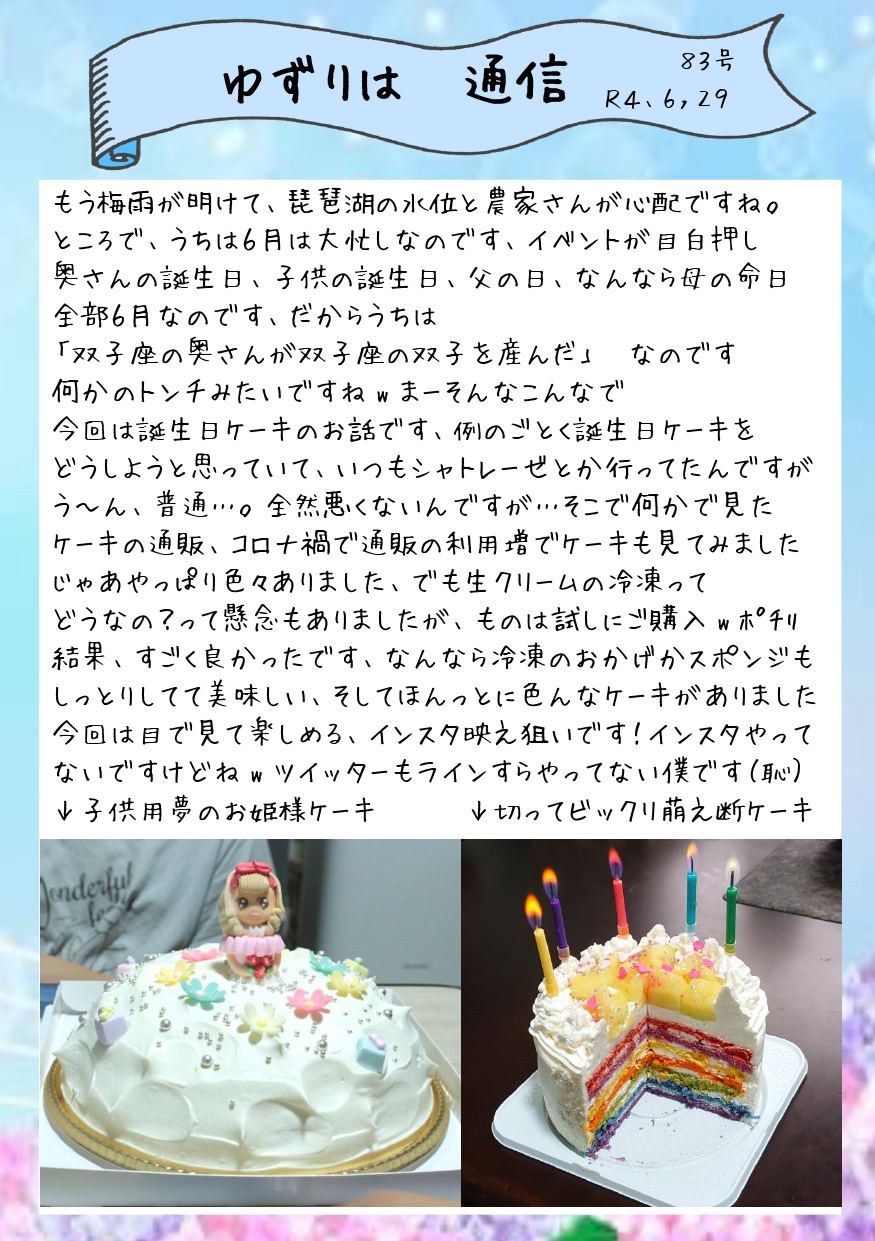 ゆずりは 通信
83号
R4、6,29
もう梅雨が明けて、琵琶湖の水位と農家さんが心配ですね。
ところで、うちは6月は大忙しなのです、イベントが目白押し
奥さんの誕生日、子供の誕生日、父の日、なんなら母の命日
全部6月なのです、だからうちは
「双子座の奥さんが双子座の双子を産んだ」 なのです
何かのトンチみたいですねw まーそんなこんなで
今回は誕生日ケーキのお話です、例のごとく誕生日ケーキを
どうしようと思っていて、いつもシャトレーゼとか行ってたんですが
う〜ん、普通…。全然悪くないんですが…そこで何かで見た
ケーキの通販、コロナ禍で通販の利用増でケーキも見てみました
じゃあやっぱり色々ありました、でも生クリームの冷凍って
どうなの?って懸念もありましたが、ものは試しにご購入w ポチリ
結果、すごく良かったです、なんなら冷凍のおかげかスポンジも
しっとりしてて美味しい、そしてほんっとに色んなケーキがありました
今回は目で見て楽しめる、インスタ映え狙いです!インスタやって
ないですけどねw ツイッターもラインすらやってない僕です(恥)
↓子供用夢のお姫様ケーキ ↓切ってビックリ萌え断ケーキ
onderful